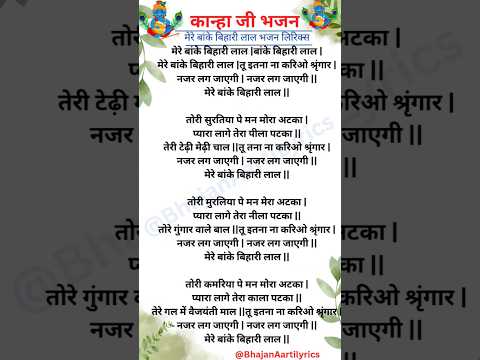 कान्हा जी भजन
मेरे बांके बिहारी लाल भजन लिरिक्स
मेरे बांके बिहारी लाल |बांके बिहारी लाल |
मेरे बांके बिहारी लाल |तू इतना ना करिओ श्रृंगार |
नजर लग जाएगी | नजर लग जाएगी ||
मेरे बांके बिहारी लाल ||
तोरी सुरतिया पे मन मोरा अटका |
प्यारा लागे तेरा पीला पटका ||
तेरी टेढ़ी मेढ़ी चाल ||तू तना ना करिओ श्रृंगार |
नजर लग जाएगी | नजर लग जाएगी ||
मेरे बांके बिहारी लाल ||
तोरी मुरलिया पे मन मेरा अटका |
प्यारा लागे तेरा नीला पटका ||
तोरे गुंगार वाले बाल ||तू इतना ना करिओ श्रृंगार |
नजर लग जाएगी | नजर लग जाएगी ||
मेरे बांके बिहारी लाल ||
तोरी कमरिया पे मन मोरा अटका |
प्यारा लागे तेरा काला पटका ||
तेरे गल में वैजयंती माल ||तू इतना ना करिओ श्रृंगार |
नजर लग जाएगी | नजर लग जाएगी ||
मेरे बांके बिहारी लाल ||
@BhajanAartilyrics
तेरी टेढ़ी मे
करिओ श्रृंगार |
तोरे गुंगार
@BhajanAartilyrics